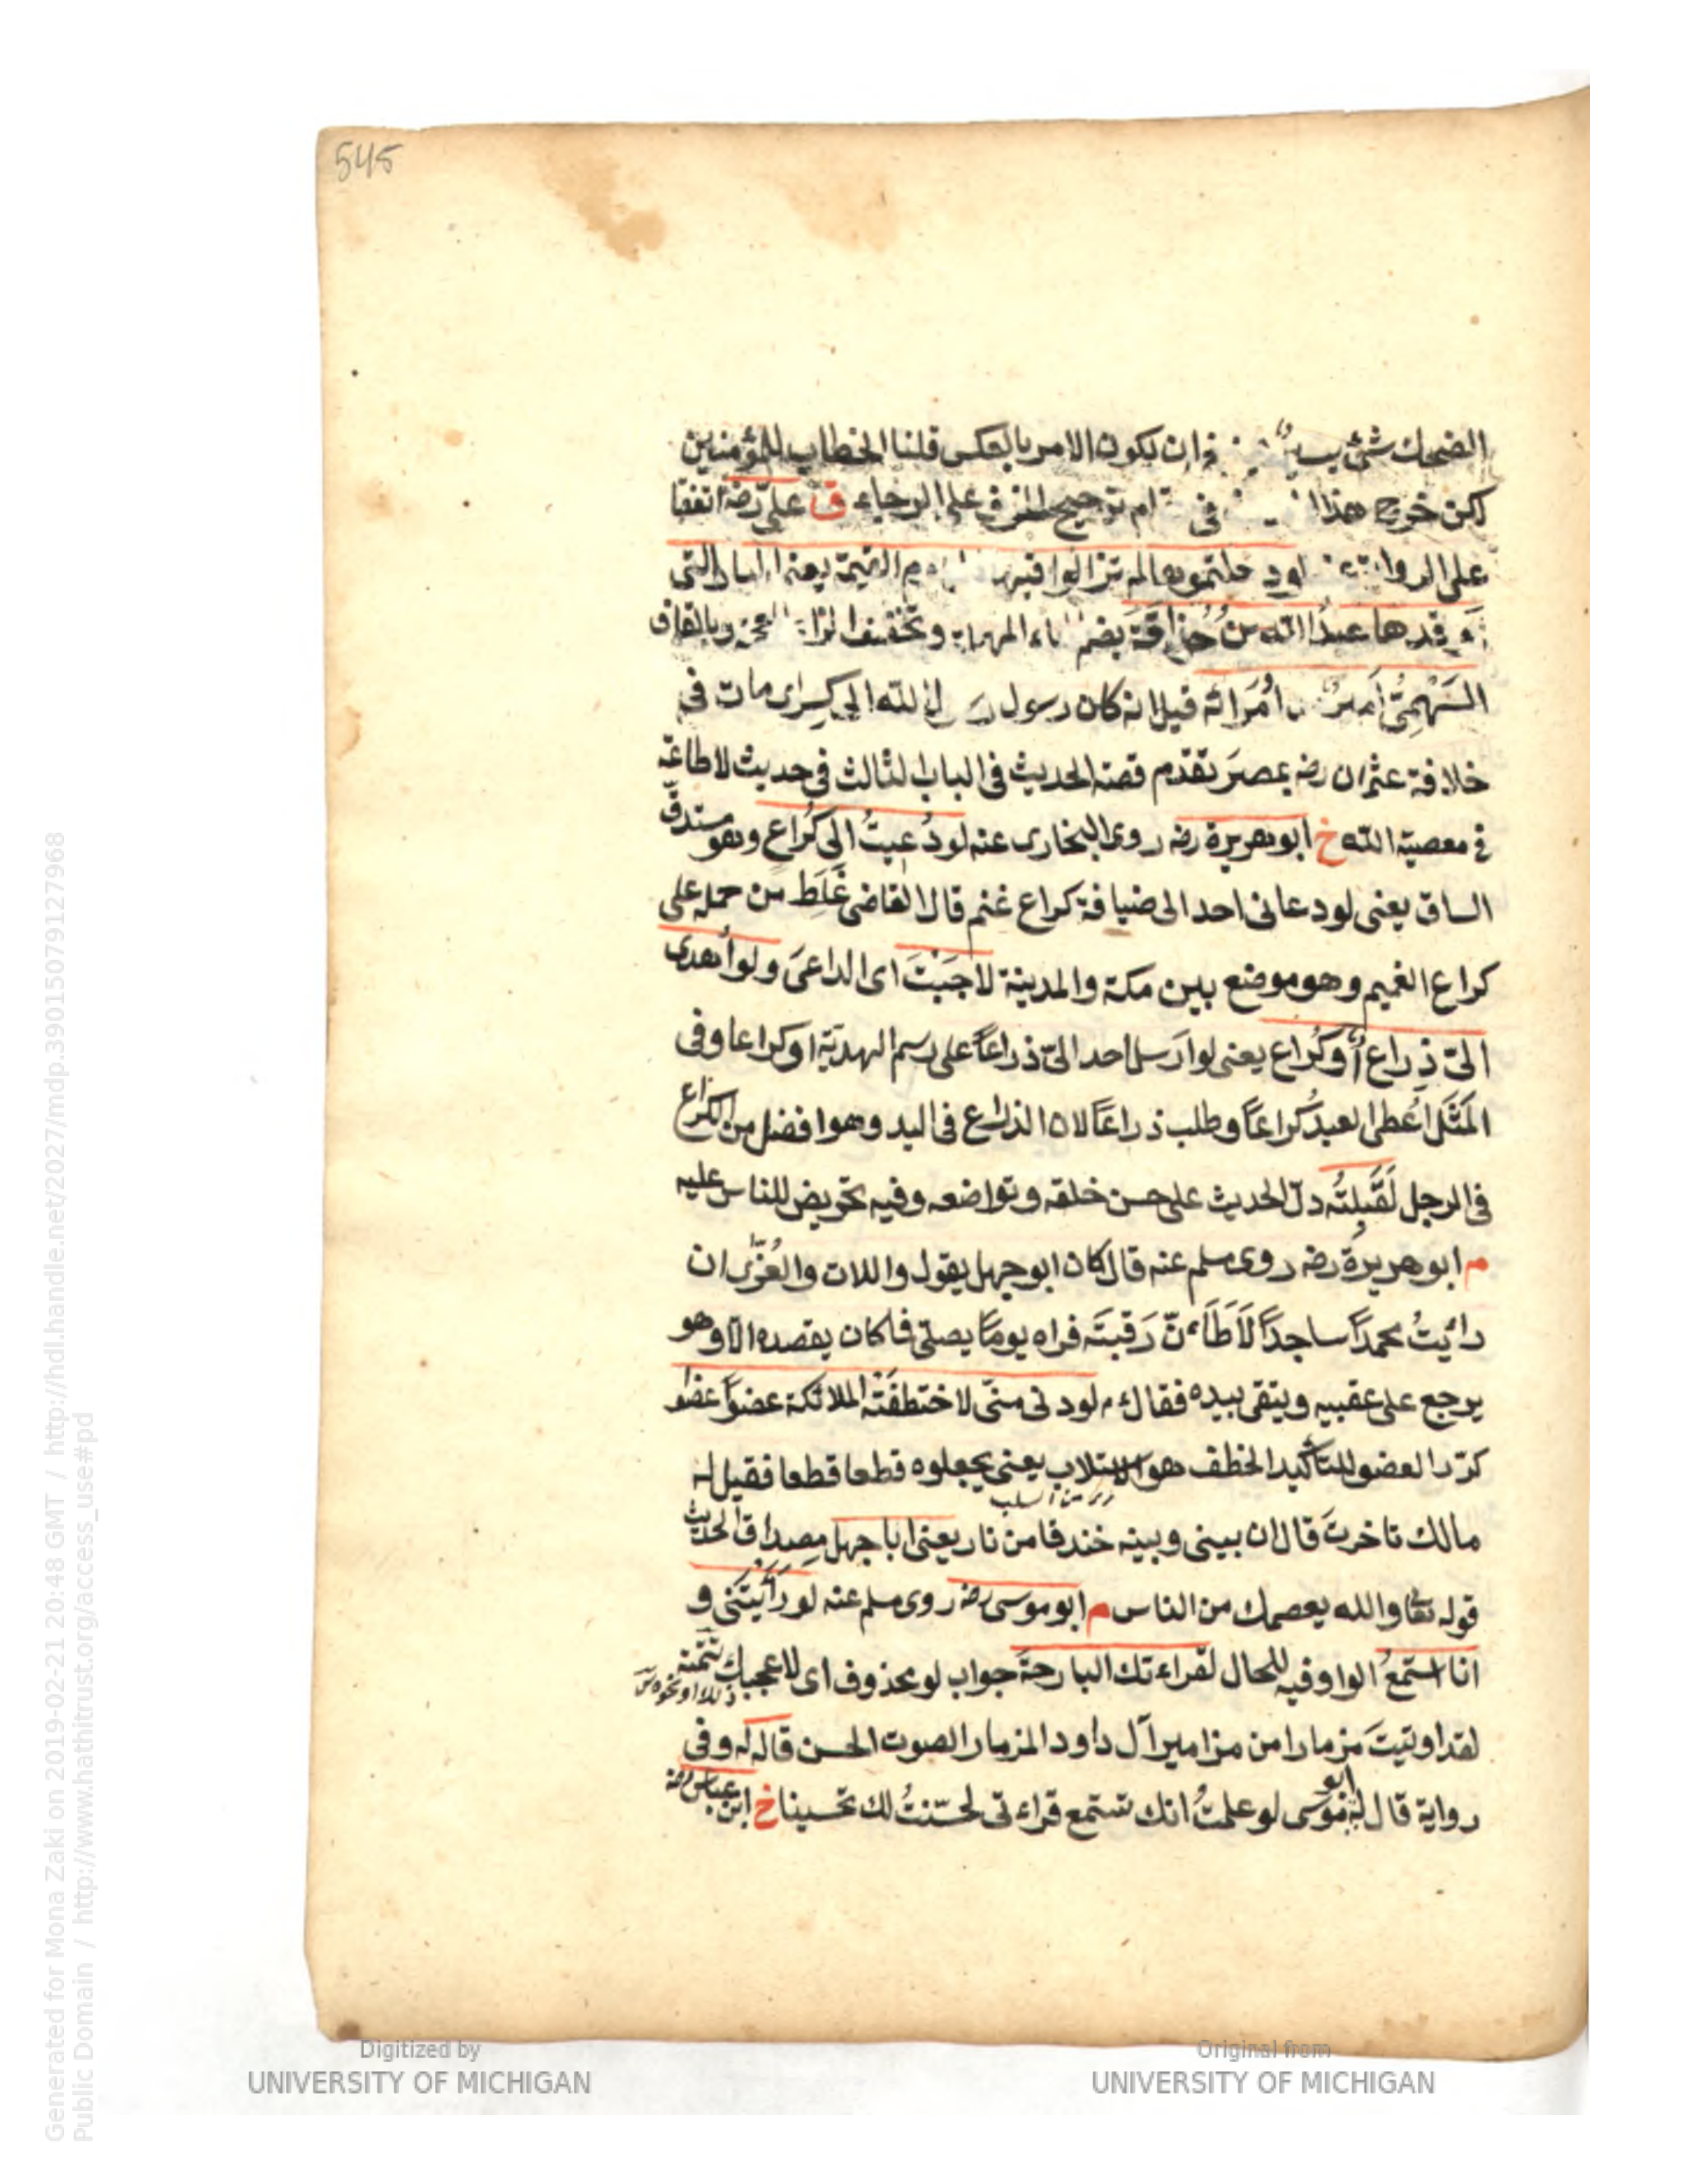 545
الضحك شئ فان يكون الامر بالعكس قلنا الخطاب للمؤمنين
لكن خرج هذا فى ترجيح الخوف على الرجاء ق على رضه اتفقا
على الرواية عنه لو دخلتموها لم تزالوا فيها يوم القيمة يعنى النار التى
اوقدها عبد الله بن حُذافة بضم الحاء المهملة وتخفيف الذال المعجمة وبالقاف
السَّهْمِىُّ اُمَرائه قيل انه كان رسول رسول الله الى كسرى مات فى
خلافة عثمان رضه بمصرَ تقدّم قصة الحديث فى الباب الثالث فى حديث لا طاعة
فى معصية الله خ ابو هريرة رضه روى البخارى عنه لو دُعيتُ الى كُراع وهو مستدقّ
الساق يعنى لو دعانى احد الى ضيافة كراع غنم قال القاضى غَلَط من حمله على
كراع الغميم وهو موضع بين مكة والمدينة لاجبْتَ اى الداعىَ ولو اُهدى
الىّ ذِراع أو كُراع يعنى لو ارسل احد الىّ ذراعاً على رسم الهديّة او كراعا وفى
المَثَل اُعطى العبدُ كراعاً وطلب ذراعاً لان الذراع فى اليد وهو افضل من الكراع
فى الرجل لَقَبِلتُه دلّ الحديث على حسن خلقه وتواضعه وفيه تحريض للناس عليه
م ابو هريرة رضه روى مسلم عنه قال كان ابو جهل يقول واللات والعُزّى ان
رائيتُ محمداً ساجداً لَاَطَاَنّ رَقبتَه فراه يوماً يصلّى فاكان يقصده الا وهو
يرجع على عقبيه ويتقى بيده فقال م لو دنى منّى لاختطفَتْه الملائكة عضواً عضوا
كرّر العضو للتأكيد الخطف هو الاستلاب يعنى يجعلوه قطعا قطعا فقيل له
من السلب
مالك تاخرتَ قال ان بينى وبينه خندقا من نار يعنى ابا جهل مصداق الحديث
قوله تعا والله يعصمك من الناس م ابو موسى رضه روى مسلم عنه لو رَأيتَنى و
انا استمعُ الواو فيه للحال لقراءتك البارحةَ جواب لو محذوف اى لاعجبك تتمته
ذلك او نحوه
لقد اوتيتَ مزمارا من مزامير آل داود المزمار الصوت الحسن قاله له وفى
رواية قال له ابو موسى لو علمتُ انك تستمع قراءتى لحسّنتُ لك تحسينا خ ابن عباس رضه
Digitized by
UNIVERSITY OF MICHIGAN
Original from
UNIVERSITY OF MICHIGAN
Generated for Mona Zaki on 2019-02-21 20:48 GMT / http://hdl.handle.net/2027/mdp.39015079127968
Public Domain / http://www.hathitrust.org/access_use#pd